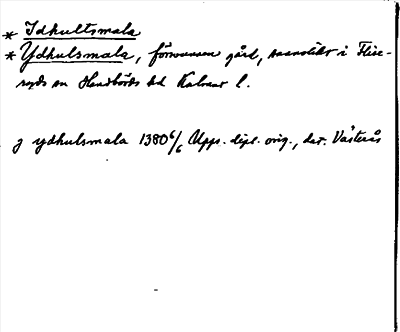 * Idhultsmala
* Ydhulsmala, försvunnen gård, sannolikt i Flise-
ryds sn Handbörds hd Kalmar l.
j ydhulsmala 1380 6/6 Upps. dipl. orig., dat. Västerås